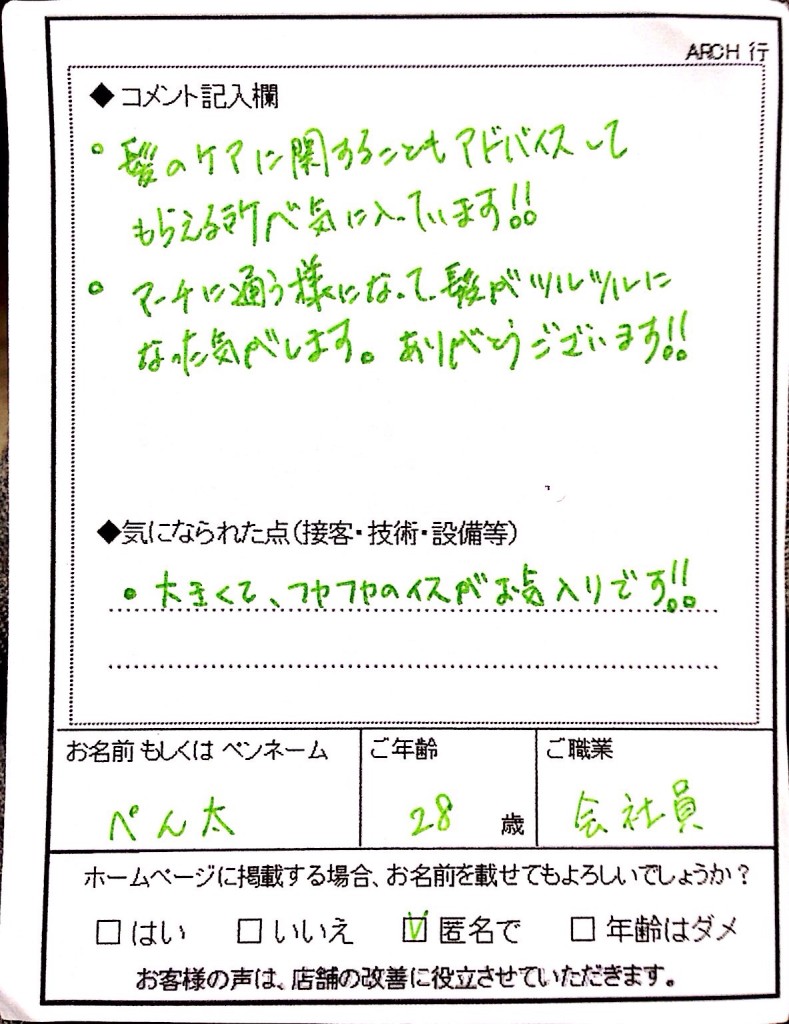 ARCH 行
◆ コメント記入欄
• 髪のケアに関することもアドバイスして
もらえる所が気に入っています!!
• アーチに通う様になって、髪がツルツルに
なった気がします。ありがとうございます!!
◆気になられた点(接客・技術・設備等)
• 大きくて、フヤフヤのイスがお気入りです!!
お名前 もしくは ペンネーム
ご年齢
ご職業
ぺん太
28 歳
会社員
ホームページに掲載する場合、お名前を載せてもよろしいでしょうか？
□ はい □ いいえ ☑ 匿名で □ 年齢はダメ
お客様の声は、店舗の改善に役立させていただきます。